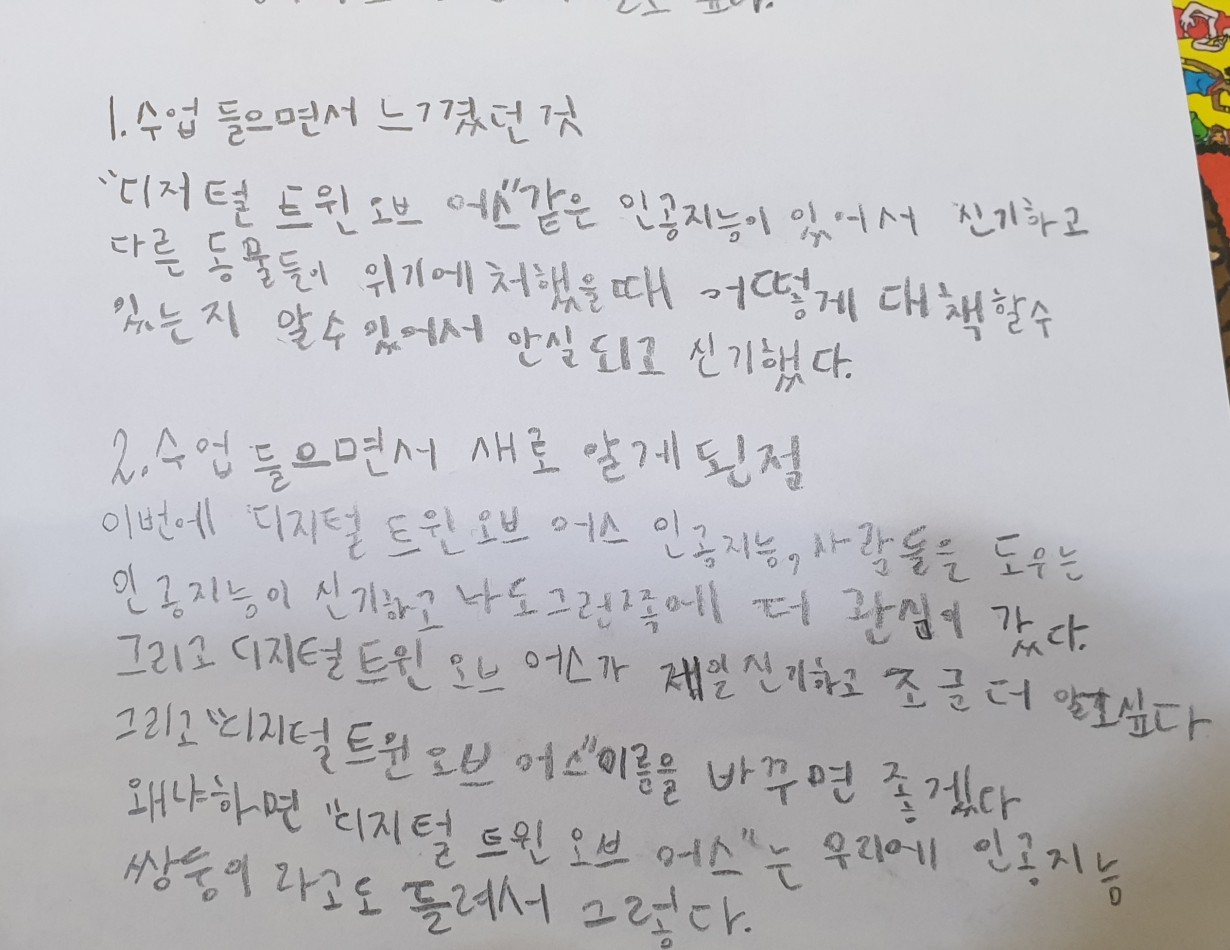 싶다.
1. 수업 들으면서 느꼈던 것
"디저털 트윈 오브 어스"같은 인공지능이 있어서 신기하고
다른 동물들이 위기에 처했을때 어떻게 대책할수
있는지 알수 있어서 안심 되고 신기했다.
2. 수업 들으면서 새로 알게 된점
이번에 디지털 트윈 오브 어스 인공지능, 사람들을 도우는
인공지능이 신기하고 나도그런쪽에 더 관심이 갔다.
그리고 디지털트윈 오브 어스가 제일신기하고 조금더 알고싶다
그리고 "디지털트윈 오브 어스"이름을 바꾸면 좋겠다
왜냐하면 "디지털 트윈 오브 어스"는 우리에 인공지능
쌍둥이 라고도 들려서 그렇다.